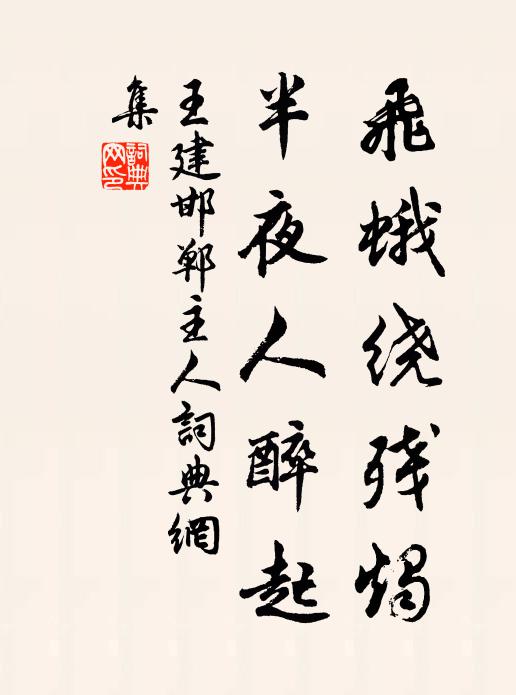 飛蛾绕残燭
半夜人醉起
王建邯鄲主人詞典網
集
詞典
网印